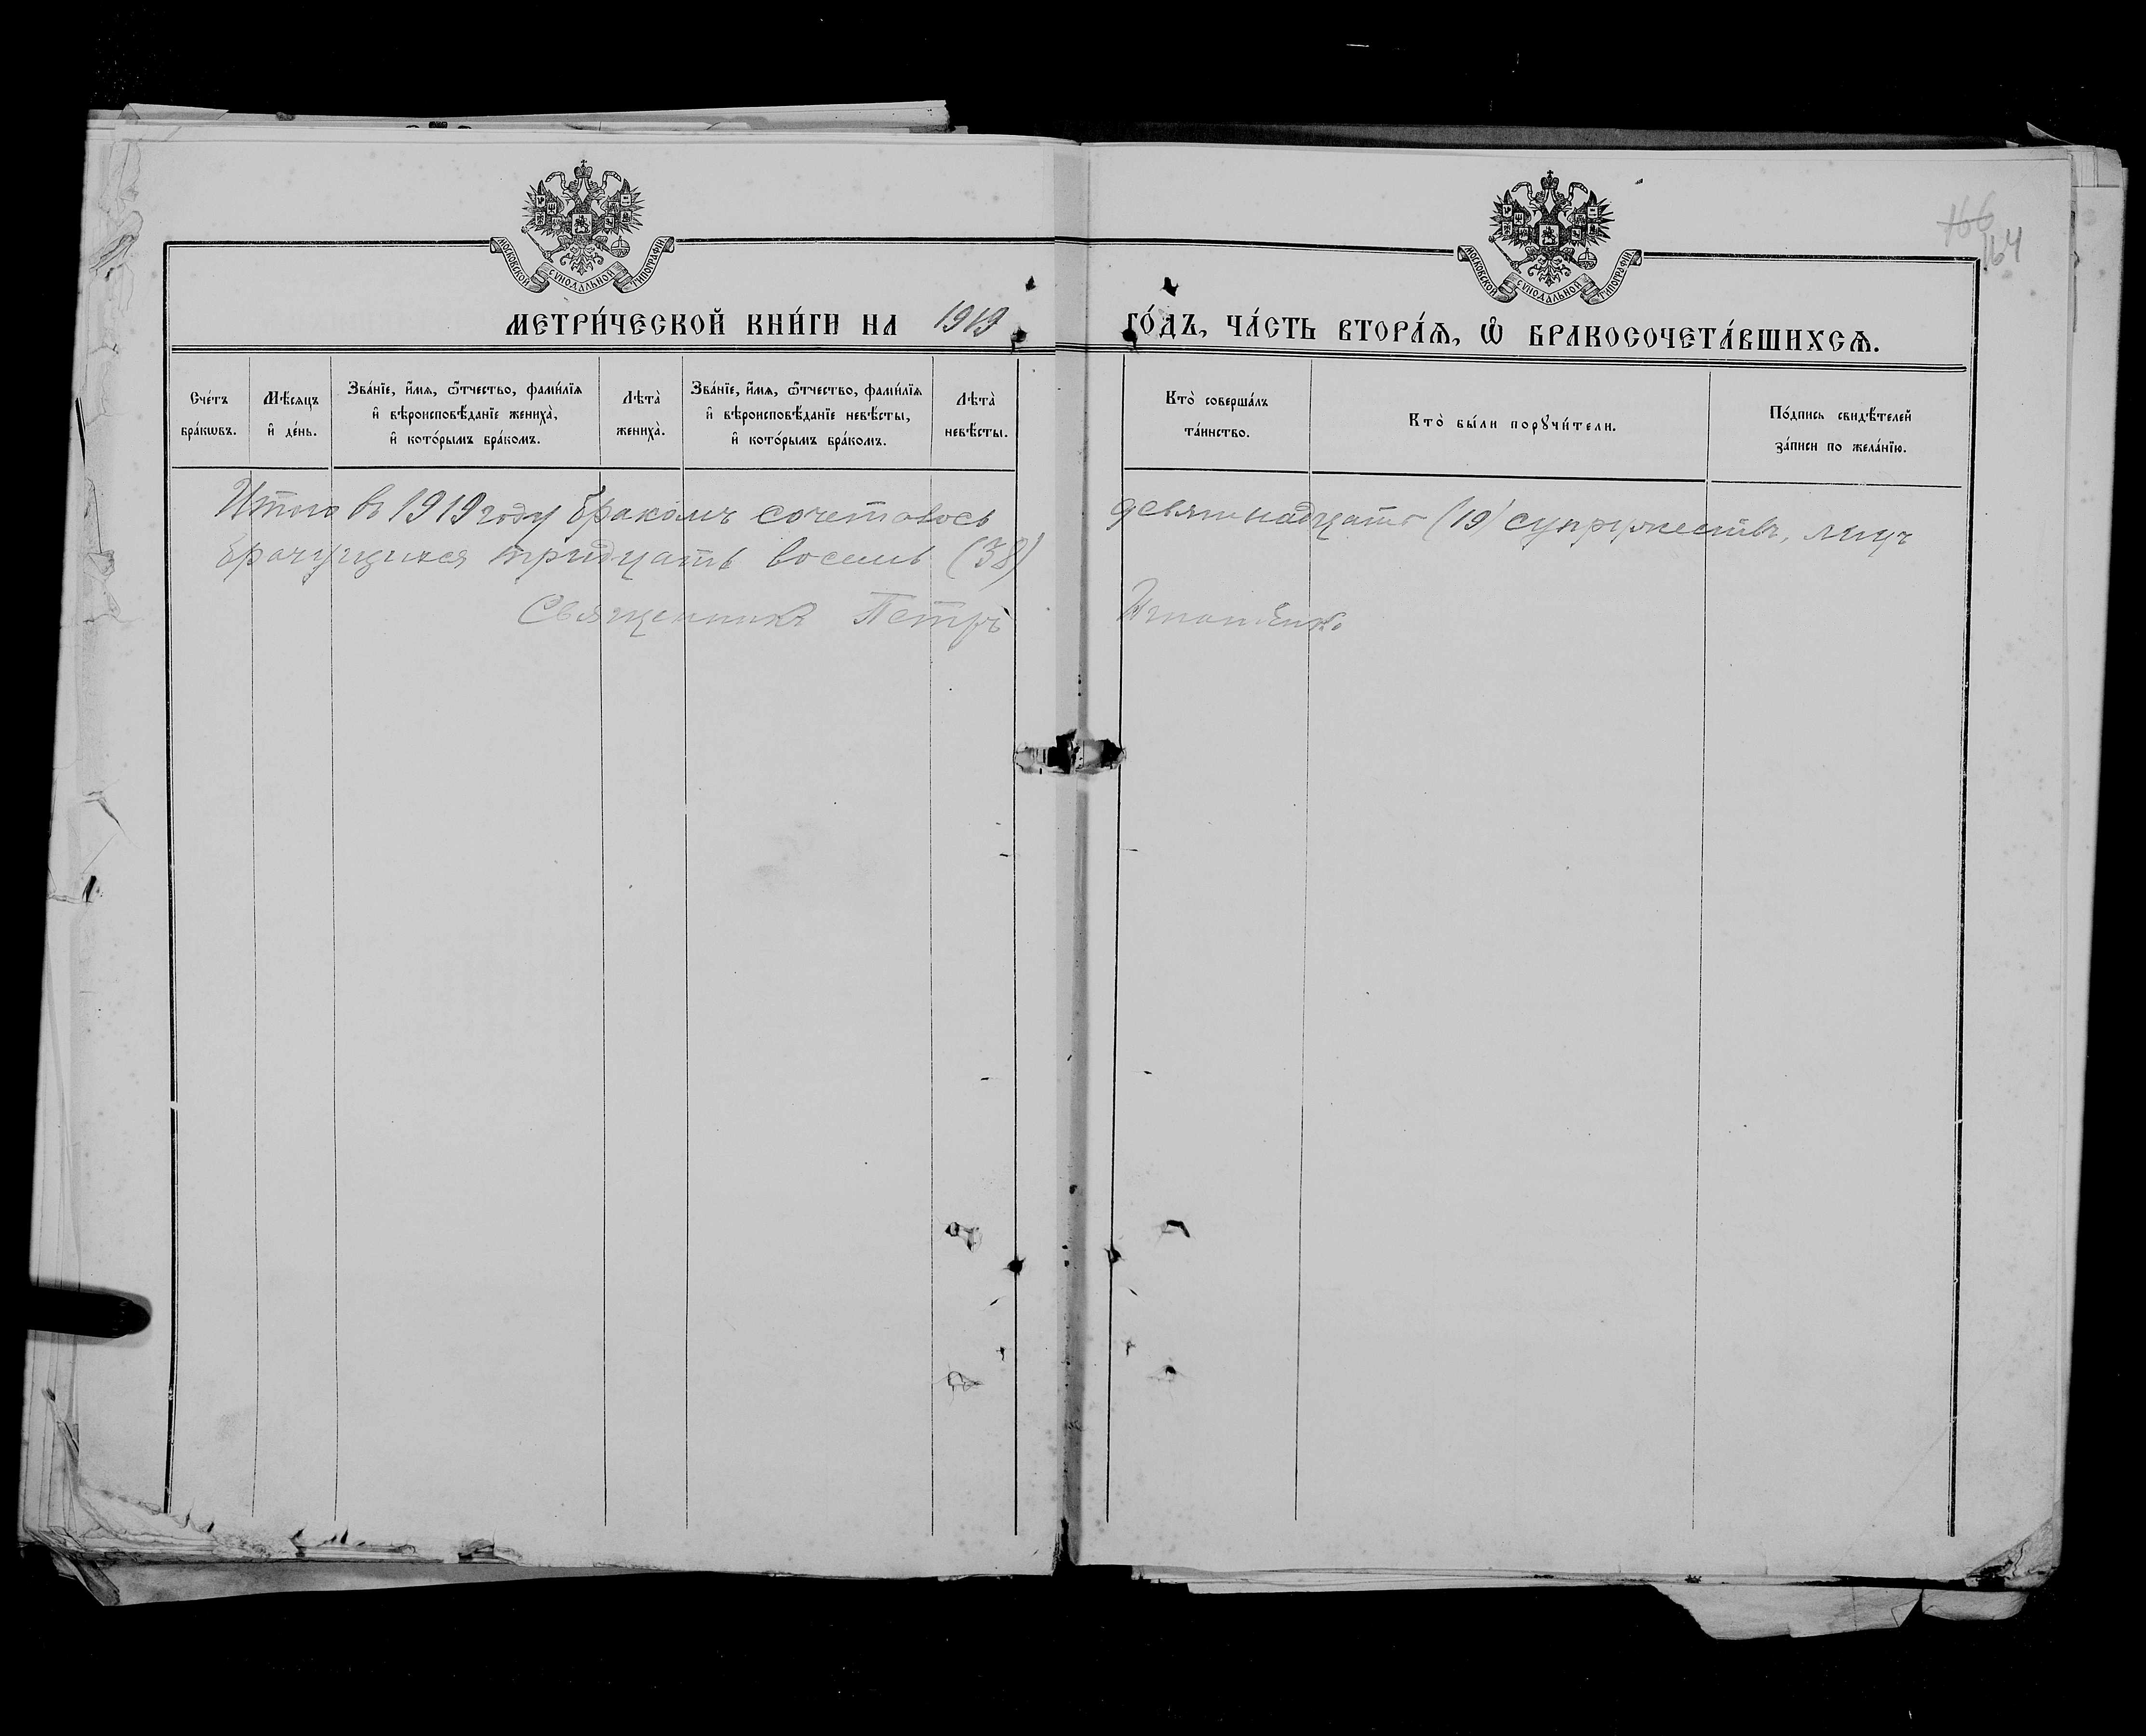 МОСКОВСКОЙ СѴНОДАЛЬНОЙ ТИПОГРАФІИ
МОСКОВСКОЙ СѴНОДАЛЬНОЙ ТИПОГРАФІИ
166
164
МЕТРИ́ЧЕСКОЙ КНИ́ГИ НА 1919 ГО́ДЪ, ЧА́СТЬ ВТОРА́Ѧ, Ѽ БРАКОСОЧЕТА́ВШИХСѦ.
Сче́тъ
бра́кѡвъ.
Мѣ́сяцъ
и҆ де́нь.
Зва́нїе, и҆́мѧ, ѻ҆́тчество, фами́лїѧ
и҆ вѣроисповѣ́данїе жениха̀,
и҆ кото́рымъ бра́комъ.
Лѣ́та̀
жениха̀.
Зва́нїе, и҆́мѧ, ѻ҆́тчество, фами́лїѧ
и҆ вѣроисповѣ́данїе невѣ́сты,
и҆ кото́рымъ бра́комъ.
Лѣ́та̀
невѣ́сты.
Кто̀ соверша́лъ
та́инство.
Кто̀ бы́ли порꙋчи́тели.
По́дпись свидѣ́телей
за́писи по жела́нїю.
Итого въ 1919 году бракомъ сочеталось девятнадцать (19) супружествъ, лицъ
брачущихся тридцать восемь (38)
Священникъ Петръ